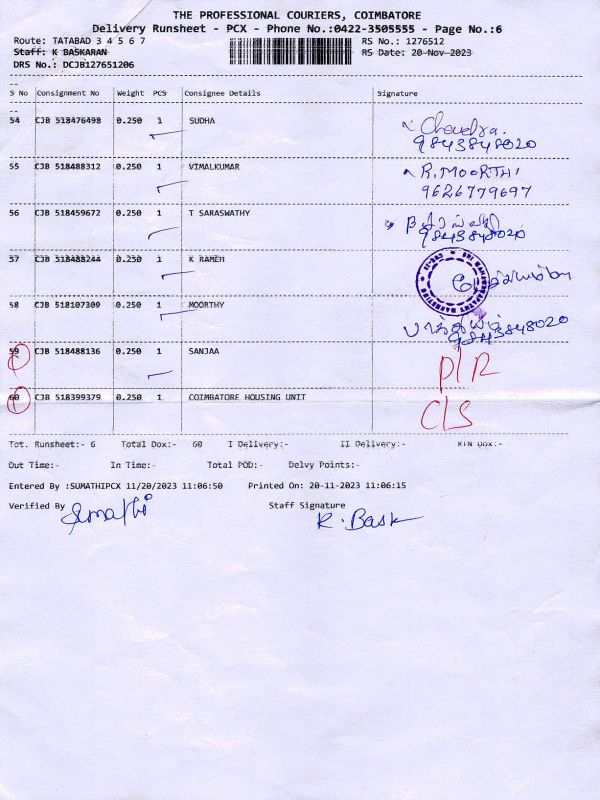 THE PROFESSIONAL COURIERS, COIMBATORE
Delivery Runsheet - PCX - Phone No.:0422-3505555 - Page No.:6
Route: TATABAD 3 4 5 6 7 RS No.: 1276512
Staff: K BASKARAN RS Date: 20-Nov-2023
DRS No.: DCJB127651206
S No Consignment No Weight PCS Consignee Details Signature
54 CJB 518476498 0.250 1 SUDHA Chandra.
9843848020
55 CJB 518488312 0.250 1 VIMALKUMAR R. MOORTHI
9626779697
56 CJB 518459672 0.250 1 T SARASWATHY
9843848020
57 CJB 518488244 0.250 1 K RAMEH
58 CJB 518107309 0.250 1 MOORTHY
9843848020
59 CJB 518488136 0.250 1 SANJAA D/R
60 CJB 518399379 0.250 1 COIMBATORE HOUSING UNIT C/S
Tot. Runsheet:- 6 Total Dox:- 60 I Delivery:- II Delivery:-
Out Time:- In Time:- Total POD:- Delvy Points:-
Entered By :SUMATHIPCX 11/20/2023 11:06:50 Printed On: 20-11-2023 11:06:15
Verified By Sumathi Staff Signature
K. Bask